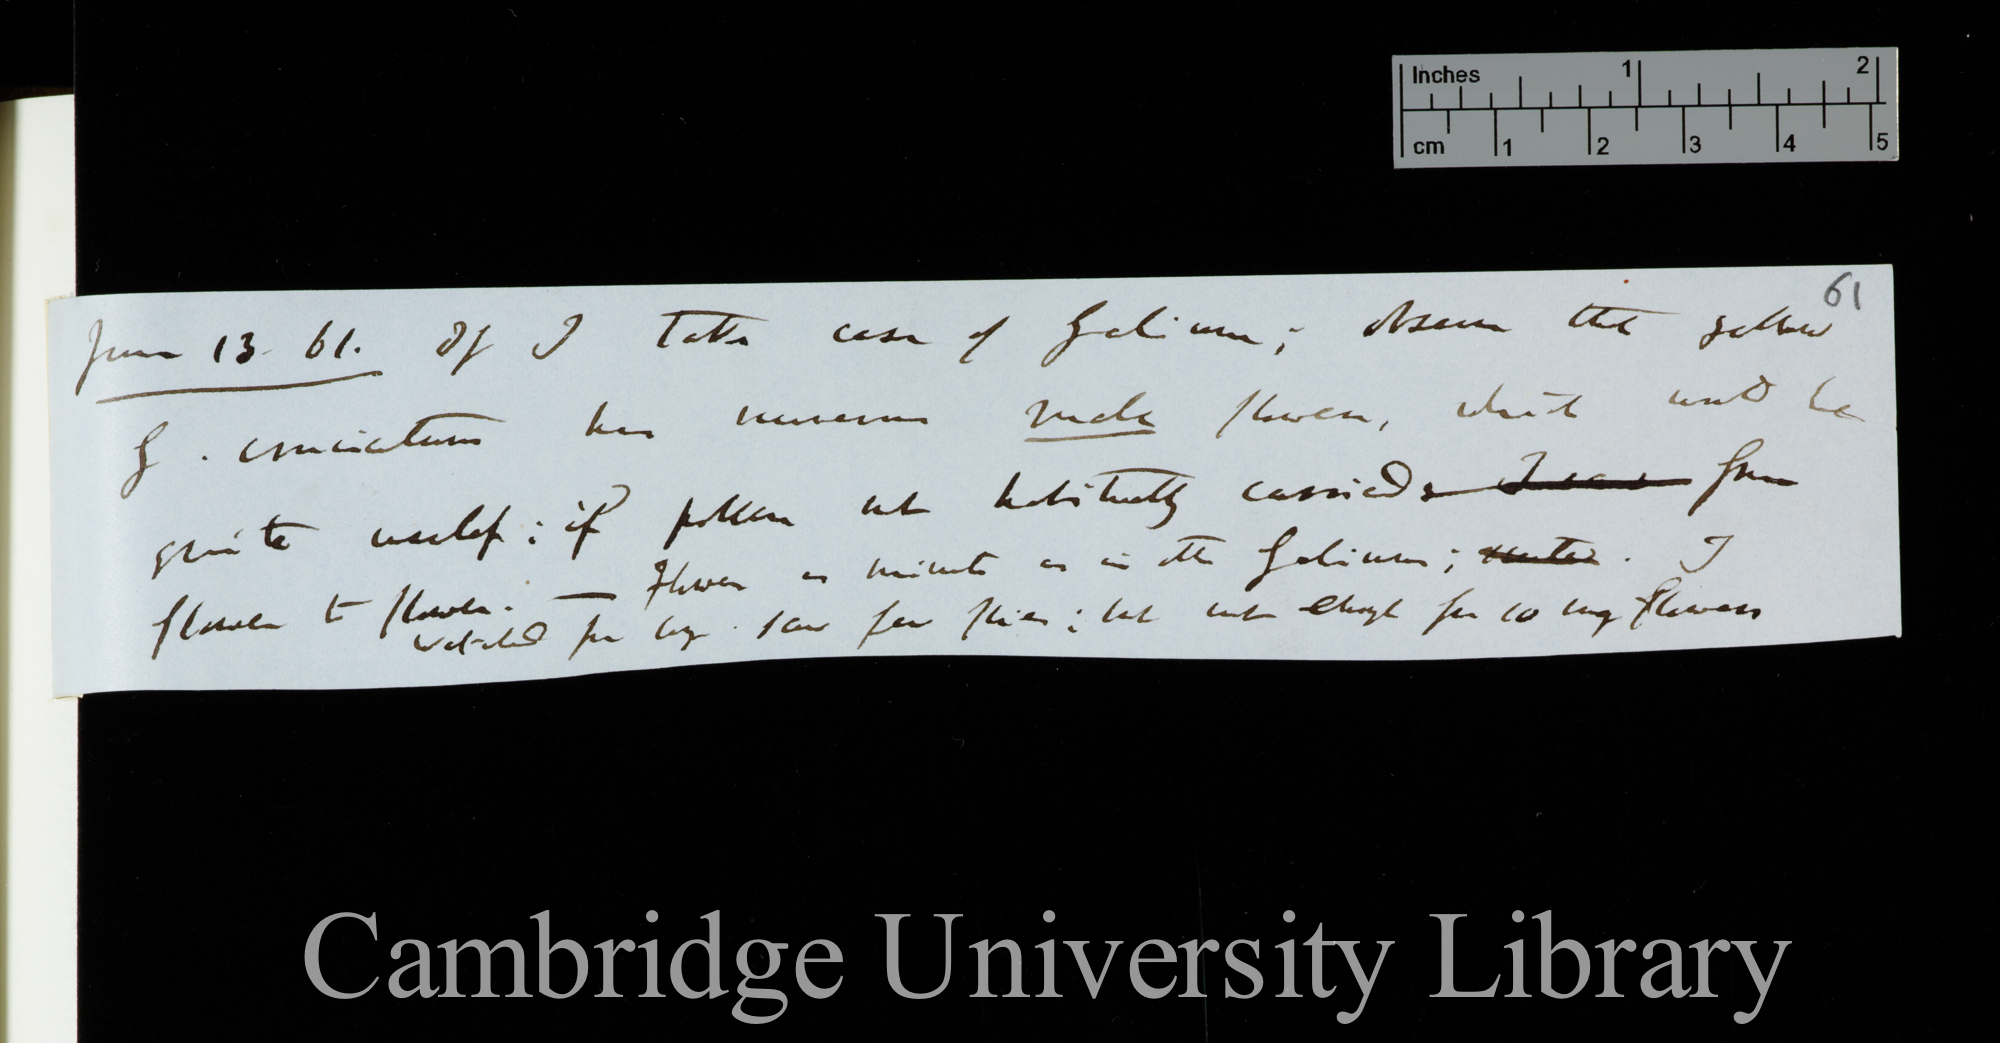 Inches 1 2
cm 1 2 3 4 5
61
June 13 - 61. If I take case of Galium; observe that yellow
G. cruciatum has numerous male flowers, which would be
quite useless; if pollen not habitually carried from
flower to flower. — Flower as minute as in the Galium; . I
watched for long. saw few flies; but not enough for so many flowers
Cambridge University Library